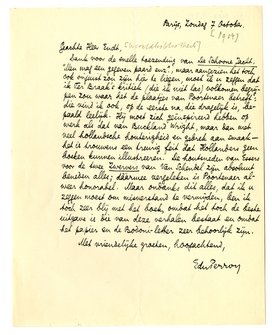 Parijs, Zondag 7 October.
[1934]
Geachte Heer Zudt, [Wereldbibliotheek]
Dank voor de snelle toezending van De Schoone Jacht.
"Men mag een gegeven paard enz.", maar aangezien het toch
ook onjuist zou zijn hier te liegen moet ik u zeggen dat
ik ter Braak's kritiek (die ik niet las) volkomen begrij-
pen zou waar het de plaatjes van Poortenaar betreft;
die vind ik ook, op de eerste na, die dragelijk is, be-
paald leelijk. Hij moet zich geïnspireerd hebben op
werk als dat van Buckland Wright, maar dan met
veel hollandsche houterigheid en gebrek aan smaak. —
Het is trouwens een treurig feit dat Hollanders geen
boeken kunnen illustreeren. De houtsneden van Essers
voor de twee Zwervers van Van Schendel zijn absoluut
beneden alles; daarmee vergeleken is Poortenaar al-
weer honorabel. Maar ondanks dit alles, dat ik u
zeggen moest om misverstand te vermijden, ben ik
toch zeer blij met het boek, omdat het toch de beste
uitgave is die van deze verhalen bestaat en omdat
het papier en de Bodoni-letter zeer behoorlijk zijn.
Met vriendelijke groeten, hoogachtend,
EduPerron